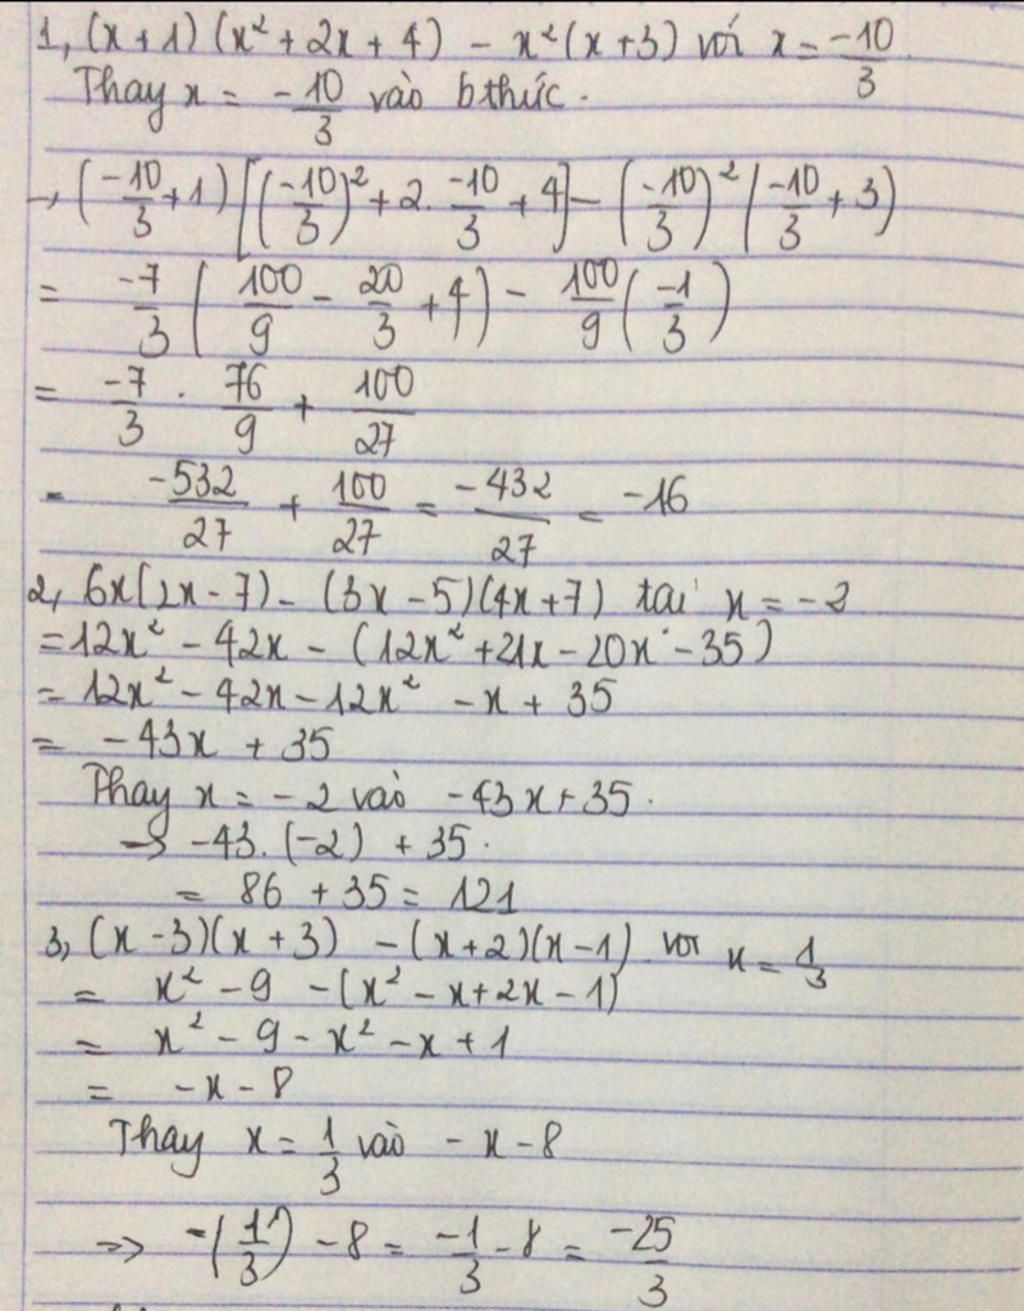 1, (x + 1) (x² + 2x + 4) - x² (x + 3) với x = -10/3
Thay x = -10/3 vào bthức.
→ (-10/3 + 1) [(-10/3)² + 2. -10/3 + 4] - (-10/3)² (-10/3 + 3)
= -7/3 (100/9 - 20/3 + 4) - 100/9 (-1/3)
= -7/3 . 76/9 + 100/27
= -532/27 + 100/27 = -432/27 = -16
2, 6x(2x - 7) - (3x - 5)(4x + 7) tại x = -2
= 12x² - 42x - (12x² + 21x - 20x - 35)
= 12x² - 42x - 12x² - x + 35
= -43x + 35
Thay x = -2 vào -43x + 35.
→ -43. (-2) + 35.
= 86 + 35 = 121
3, (x - 3)(x + 3) - (x + 2)(x - 1) với x = 1/3
= x² - 9 - (x² - x + 2x - 1)
= x² - 9 - x² - x + 1
= -x - 8
Thay x = 1/3 vào - x - 8
=> -(1/3) - 8 = -1/3 - 8 = -25/3